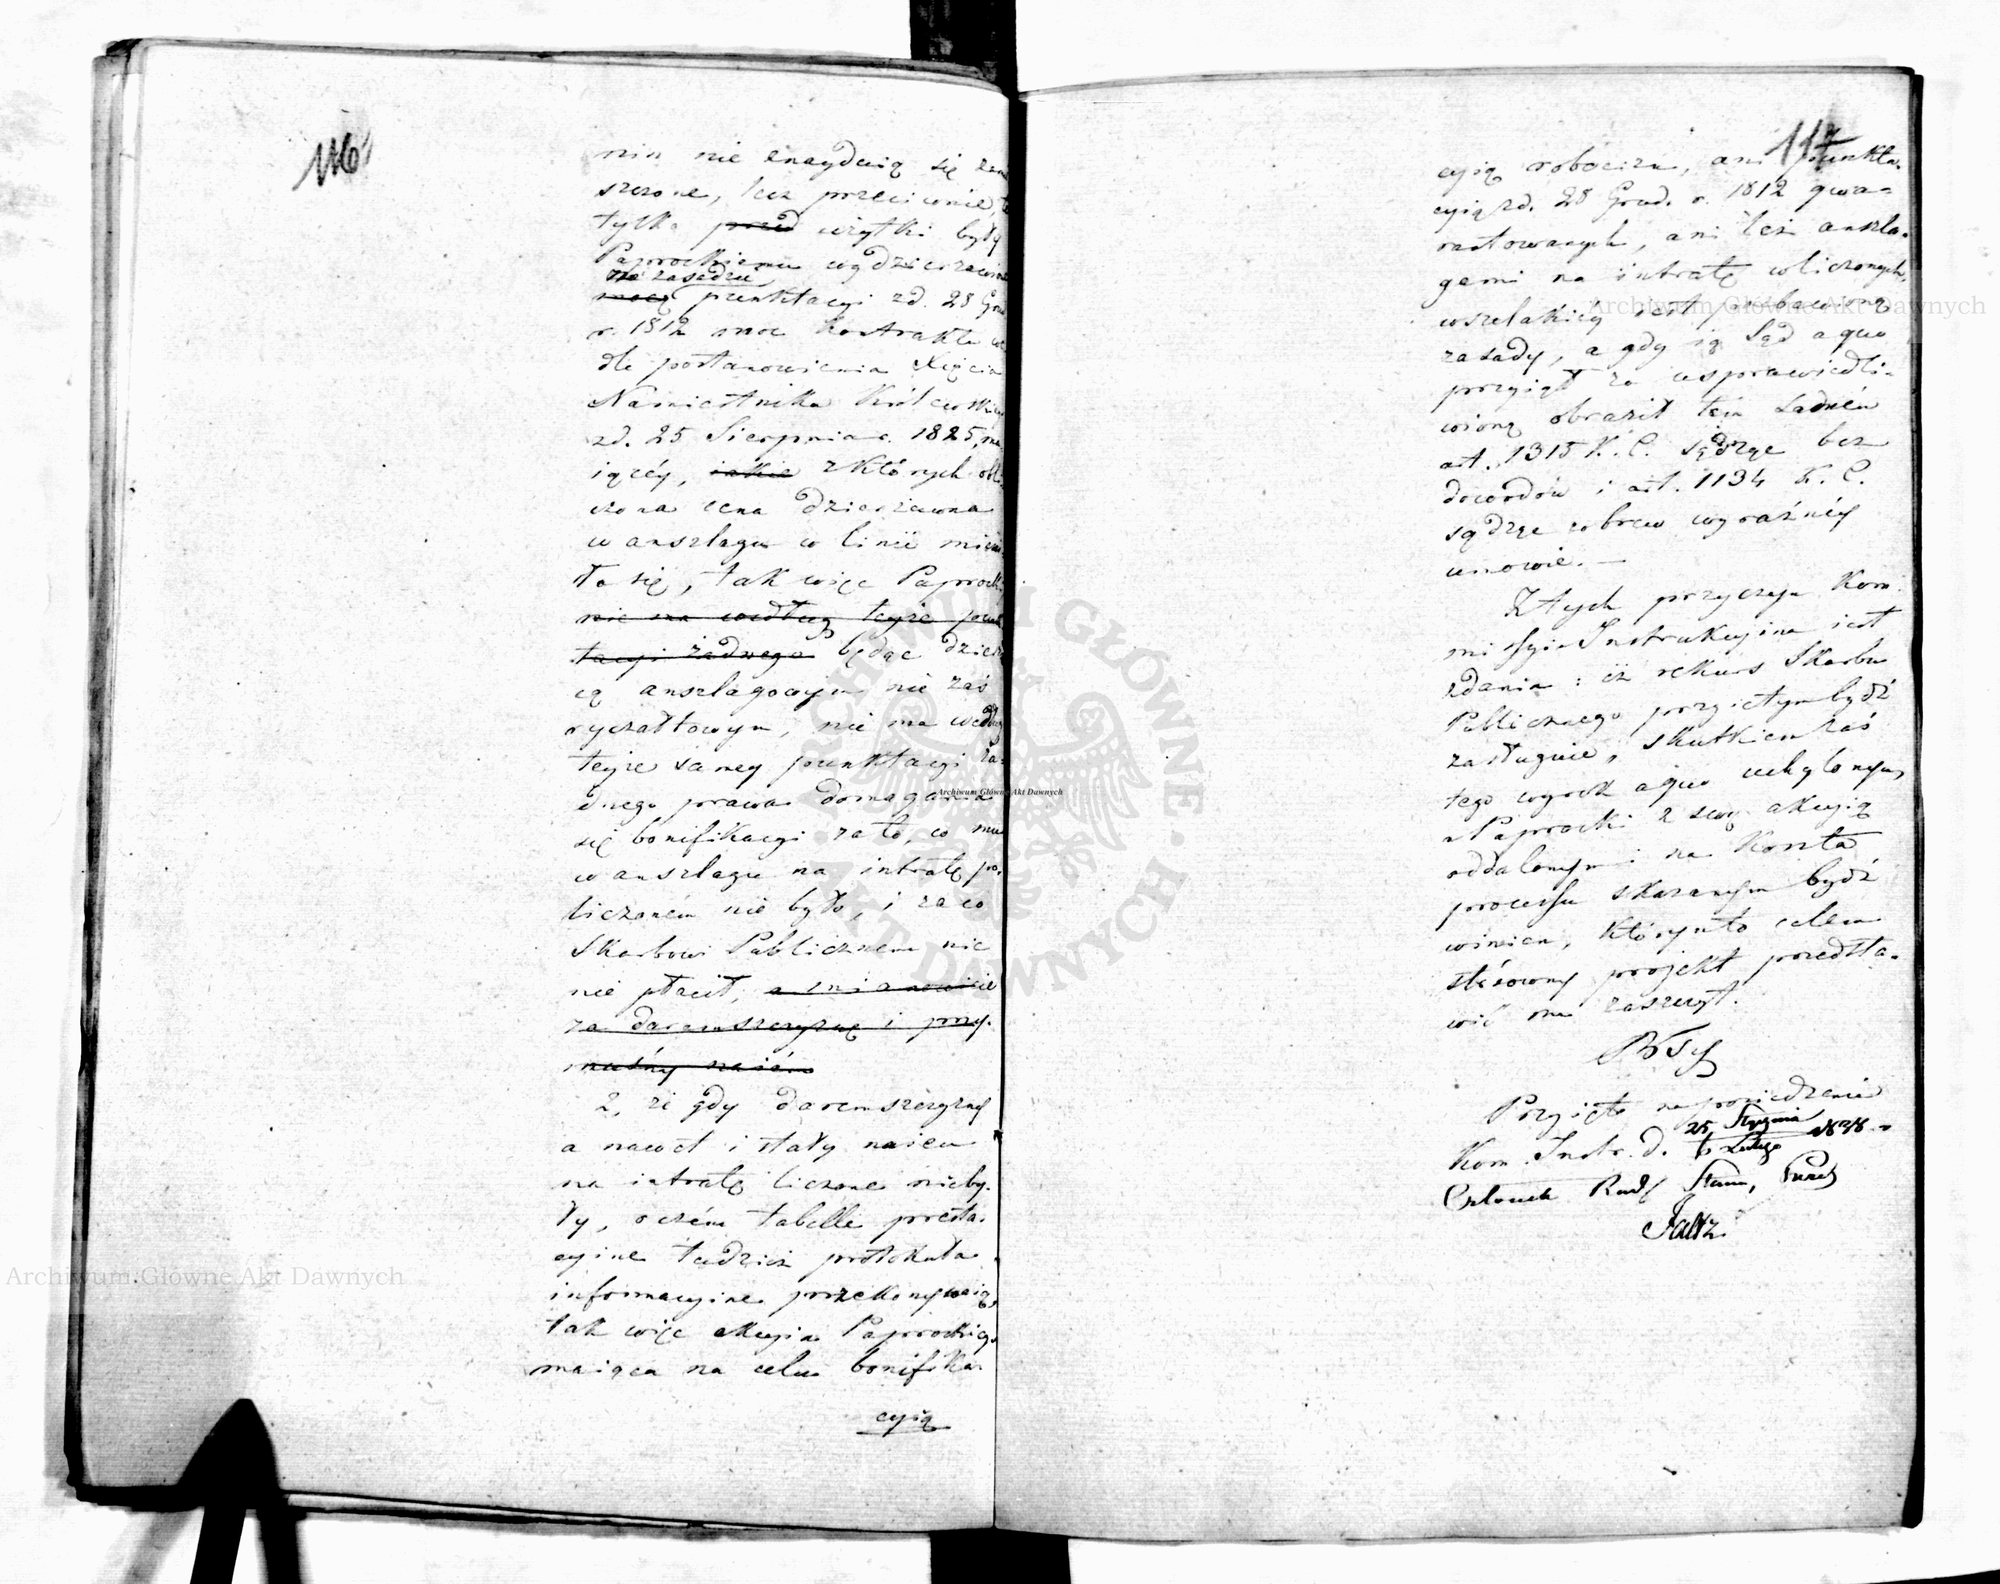 116
niu nie znayduią się zam
szczone, lecz przeciwnie, te
tylko przed użytki były
Paprockiemu wydzierzawione
na zasadzie
mocą punktacyi zd. 28 Gru
r. 1812 moc kontraktu we
dle postanowienia Xięcia
Namiestnika Królewskie
zd. 25 Sierpnia r. 1825, ma
iącéy, iakie z których obli
czona cena dzierzawna
w anszlagu w linii mieści
ła się, tak więc Paprocki
nie ma według teyże punk
tacyi żadnego będąc dzierz
cą anszlagowym nie zaś
ryczałtowym, nie ma według
teyże saméy punktacyi ża-
dnego prawa domagania
się bonifikacyi za to, co mu
w anszlagu na intratę po-
liczoném nie było, i za co
Skarbowi Publicznemu nic
nie płacił, a mianowicie
za daremszczyznę i przy-
muśny naiém
2, że gdy daremszczyzny
a nawet i stały naiem
na intratę liczone nieby-
ły, o czém tabelle presta-
cyine tudzież protokuła
informacyine przekonywaią,
tak więc akcyia Paprockiego
maiąca na celu bonifika-
cyią
117
cyią robocizn, ani punkta-
cyią zd. 28 Grud. r. 1812 gwa-
rantowanych, ani też anszla-
gami na intratę wliczonych,
wszelakiéy iest pozbawioną
zasady, a gdy ią Sąd a quo
przyiął za usprawiedli-
wioną obraził tém
art. 1315 K. C. sądząc bez
dowodów i art. 1134 K. C.
sądząc wbrew wyraźnéy
umowie. —
Z tych przyczyn Kom-
missyia Instrukcyina iest
zdania: iż rekurs Skarbu
Publicznego przyiętym bydź
zasługuie, skutkiem zaś
tego wyrok a quo uchylonym,
a Paprocki z swą akcyią
oddalonym i na koszta
processu skazanym bydź
winien, którym to celem
stósowny projekt przedsta-
wić ma zaszczyt.
Przyięto na posiedzeniu
Kom. Instr. d. 25 Stycznia / 6 Lutego 1828
Członek Rady Stanu, Prezes
Faltz